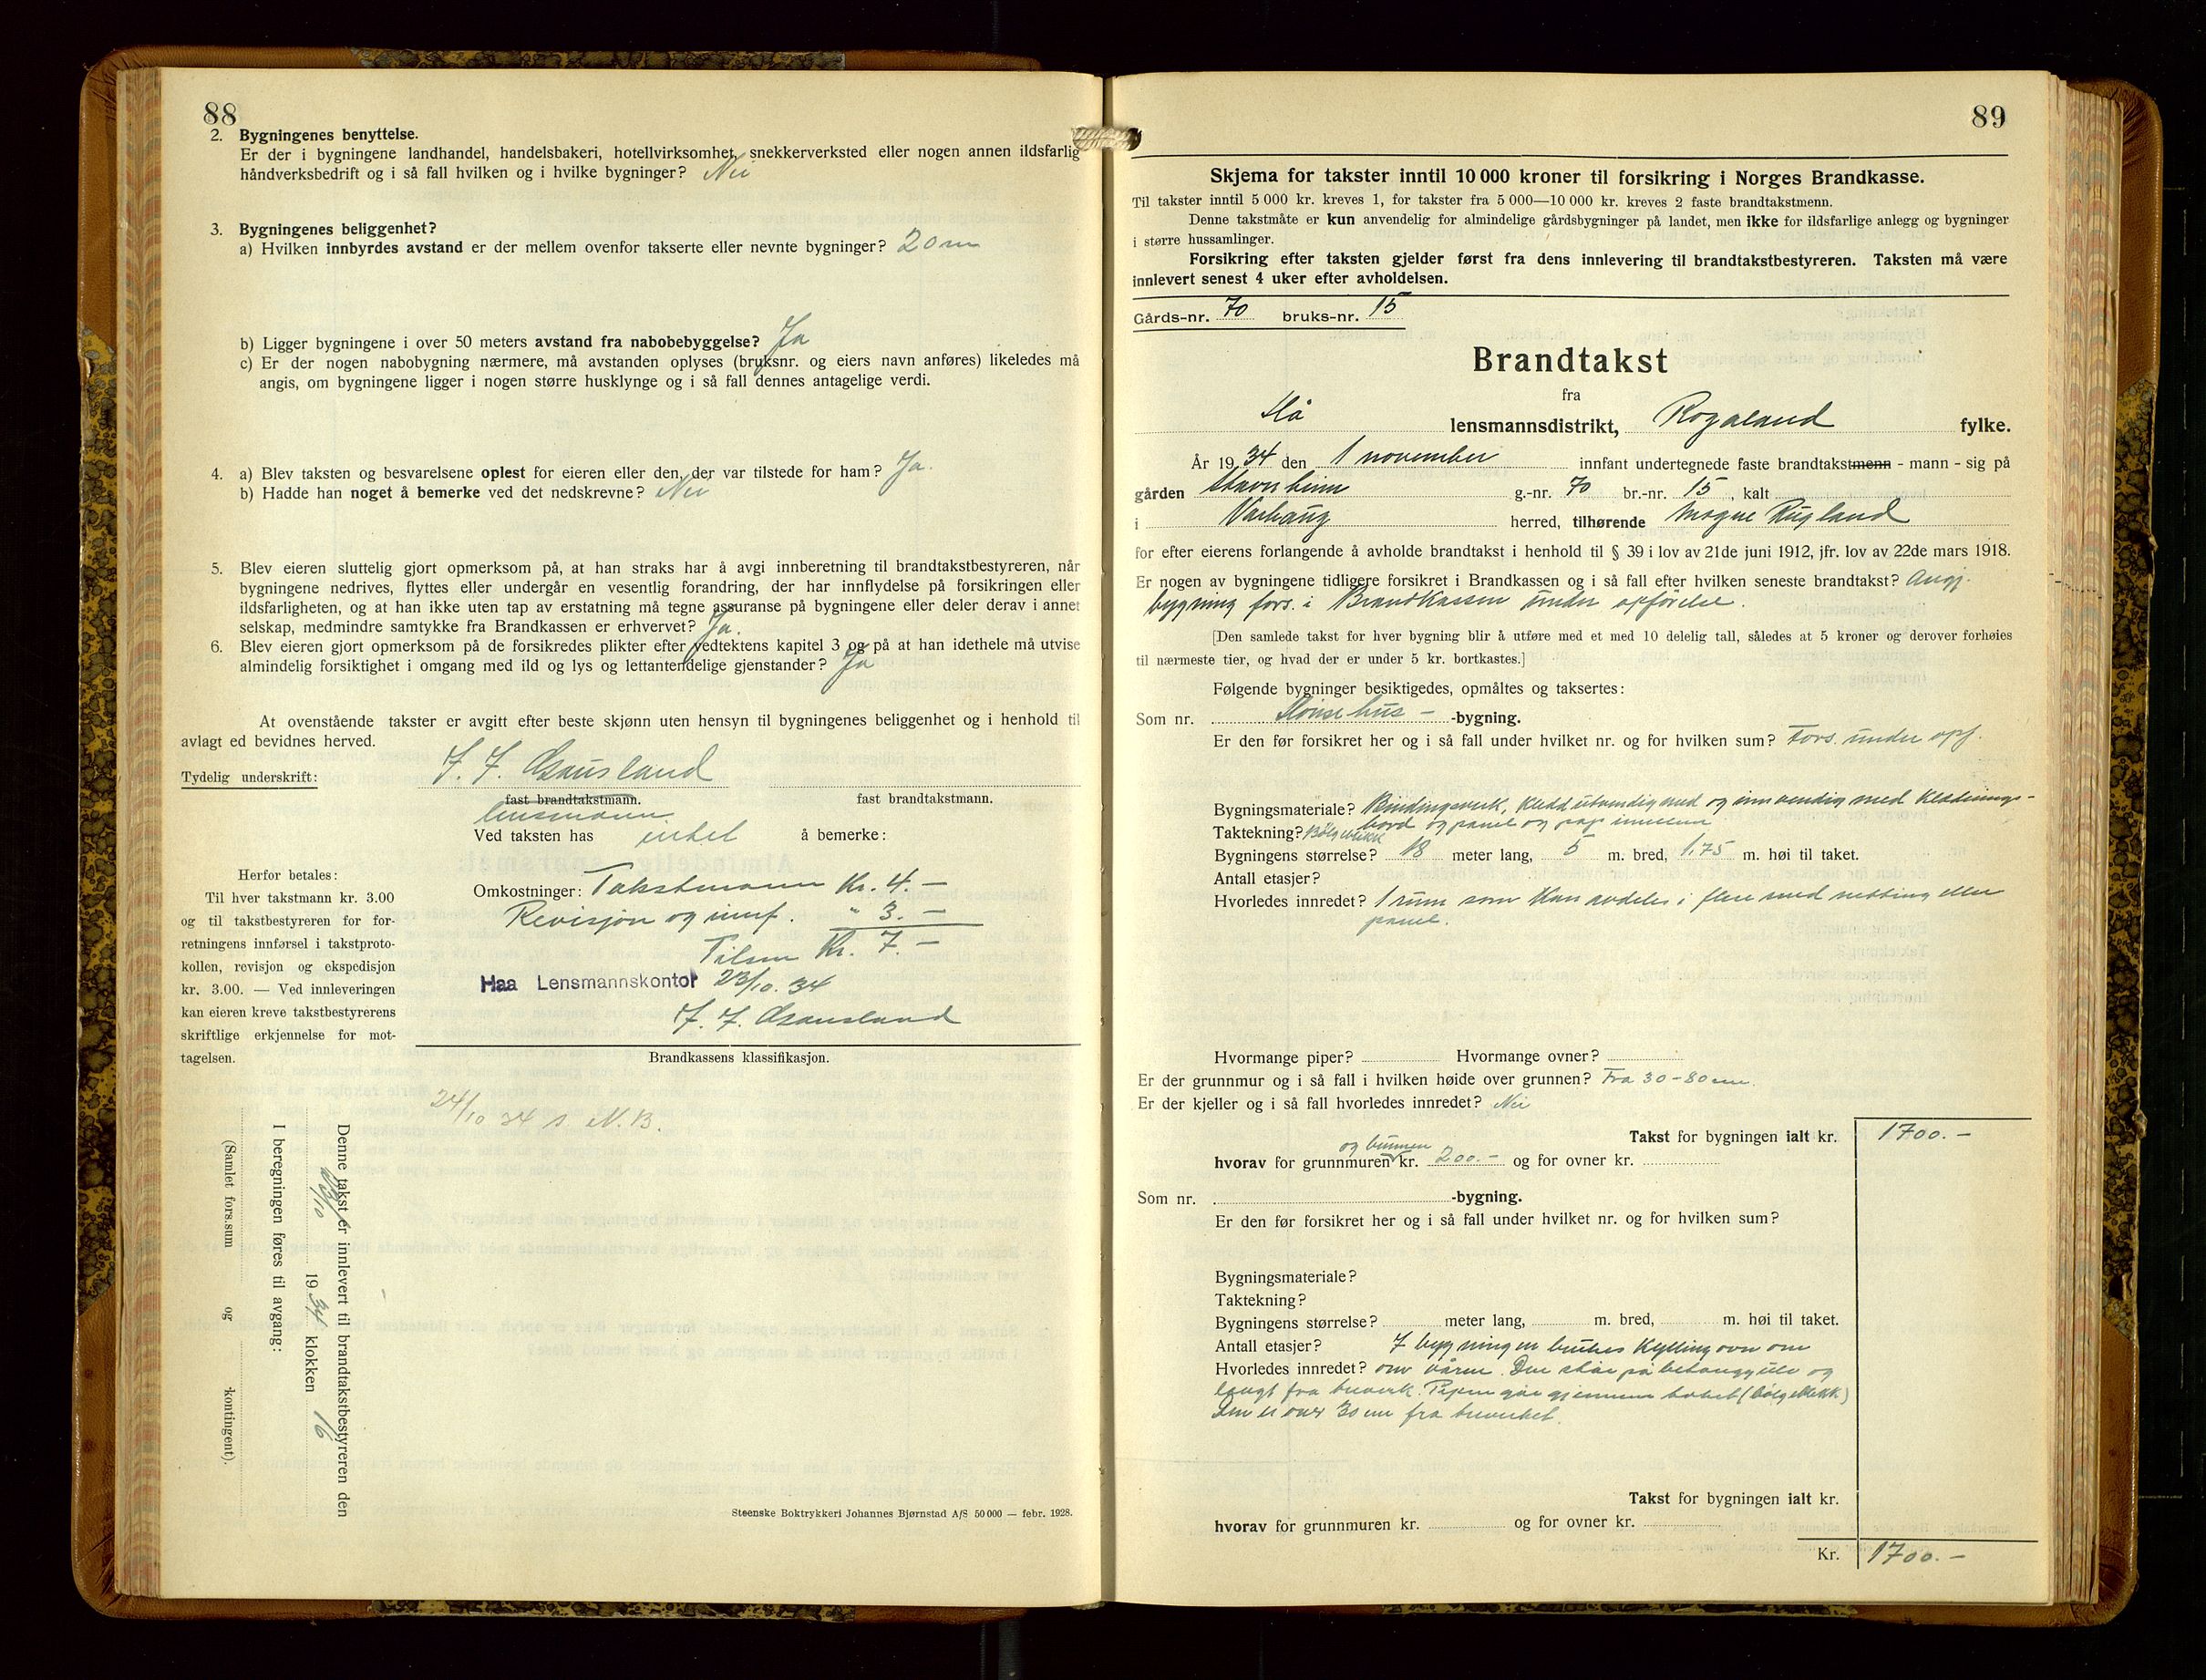 88
2. Bygningenes benyttelse.
Er der i bygningene landhandel, handelsbakeri, hotellvirksomhet, snekkerverksted eller nogen annen ildsfarlig
håndverksbedrift og i så fall hvilken og i hvilke bygninger? Nei
3. Bygningenes beliggenhet?
a) Hvilken innbyrdes avstand er der mellem ovenfor takserte eller nevnte bygninger? 20 m
b) Ligger bygningene i over 50 meters avstand fra nabobebyggelse? Ja
c) Er der nogen nabobygning nærmere, må avstanden oplyses (bruksnr. og eiers navn anføres) likeledes må
angis, om bygningene ligger i nogen større husklynge og i så fall dennes antagelige verdi.
4. a) Blev taksten og besvarelsene oplest for eieren eller den, der var tilstede for ham? Ja.
b) Hadde han noget å bemerke ved det nedskrevne? Nei
5. Blev eieren sluttelig gjort opmerksom på, at han straks har å avgi innberetning til brandtakstbestyreren, når
bygningene nedrives, flyttes eller undergår en vesentlig forandring, der har innflydelse på forsikringen eller
ildsfarligheten, og at han ikke uten tap av erstatning må tegne assuranse på bygningene eller deler derav i annet
selskap, medmindre samtykke fra Brandkassen er erhvervet? Ja.
6. Blev eieren gjort opmerksom på de forsikredes plikter efter vedtektens kapitel 3 og på at han idethele må utvise
almindelig forsiktighet i omgang med ild og lys og lettantendelige gjenstander? Ja
At ovenstående takster er avgitt efter beste skjønn uten hensyn til bygningenes beliggenhet og i henhold til
avlagt ed bevidnes herved.
Tydelig underskrift: J. J. Gausland
fast brandtakstmann. fast brandtakstmann.
lensmann
Ved taksten has intet å bemerke:
Omkostninger: Takstmann Kr. 4.—
Revisjon og innf. " 3.—
Tilsm Kr. 7.—
Haa Lensmannskontor 23/10. 34
J. J. Gausland
Herfor betales:
Til hver takstmann kr. 3.00
og til takstbestyreren for for-
retningens innførsel i takstproto-
kollen, revisjon og ekspedisjon
kr. 3.00. — Ved innleveringen
kan eieren kreve takstbestyrerens
skriftlige erkjennelse for mot-
tagelsen.
Brandkassens klassifikasjon.
24/10 34 s N.B.
Denne takst er innlevert til brandtakstbestyreren den
23/10 1934 klokken 16
I beregningen føres til avgang:
(Samlet fors.sum og kontingent).
Steenske Boktrykkeri Johannes Bjørnstad A/S 50 000 — febr. 1928.
89
Skjema for takster inntil 10 000 kroner til forsikring i Norges Brandkasse.
Til takster inntil 5 000 kr. kreves 1, for takster fra 5 000—10 000 kr. kreves 2 faste brandtakstmenn.
Denne takstmåte er kun anvendelig for almindelige gårdsbygninger på landet, men ikke for ildsfarlige anlegg og bygninger
i større hussamlinger.
Forsikring efter taksten gjelder først fra dens innlevering til brandtakstbestyreren. Taksten må være
innlevert senest 4 uker efter avholdelsen.
Gårds-nr. 70 bruks-nr. 15
Brandtakst
fra
Hå lensmannsdistrikt, Rogaland fylke.
År 1934 den 1 november innfant undertegnede faste brandtakstmenn - mann - sig på
gården Stavnheim g.-nr. 70 br.-nr. 15, kalt
i Varhaug herred, tilhørende Mogne Rugland
for efter eierens forlangende å avholde brandtakst i henhold til § 39 i lov av 21de juni 1912, jfr. lov av 22de mars 1918.
Er nogen av bygningene tidligere forsikret i Brandkassen og i så fall efter hvilken seneste brandtakst? Angj.
bygning fors. i Brandkassen under opførelse.
[Den samlede takst for hver bygning blir å utføre med et med 10 delelig tall, således at 5 kroner og derover forhøies
til nærmeste tier, og hvad der er under 5 kr. bortkastes.]
Følgende bygninger besiktigedes, opmåltes og taksertes:
Som nr. Hønsehus - -bygning.
Er den før forsikret her og i så fall under hvilket nr. og for hvilken sum? Fors. under opf.
Bygningsmateriale? Bindingsverk, kledd utvendig med og innvendig med klednings-
bord og panel og pap imellem
Taktekning? Bølgeblikk
Bygningens størrelse? 18 meter lang, 5 m. bred, 1.75 m. høi til taket.
Antall etasjer?
Hvorledes innredet? 1 rum som kan avdeles i flere med netting eller
panel.
Hvormange piper? Hvormange ovner?
Er der grunnmur og i så fall i hvilken høide over grunnen? Fra 30-80 cm.
Er der kjeller og i så fall hvorledes innredet? Nei
Takst for bygningen ialt kr. 1700.—
og bunnen
hvorav for grunnmuren kr. 200.— og for ovner kr.
Som nr. -bygning.
Er den før forsikret her og i så fall under hvilket nr. og for hvilken sum?
Bygningsmateriale?
Taktekning?
Bygningens størrelse? meter lang, m. bred, m. høi til taket.
Antall etasjer? I bygningen brukes kyllingovn om
Hvorledes innredet? om våren. Den står på betonggulv og
langt fra treverk. Pipen går gjennem taket (bølgeblikk)
Den er over 30 cm fra treverket.
Takst for bygningen ialt kr.
hvorav for grunnmuren kr. og for ovner kr.
Kr. 1700.—